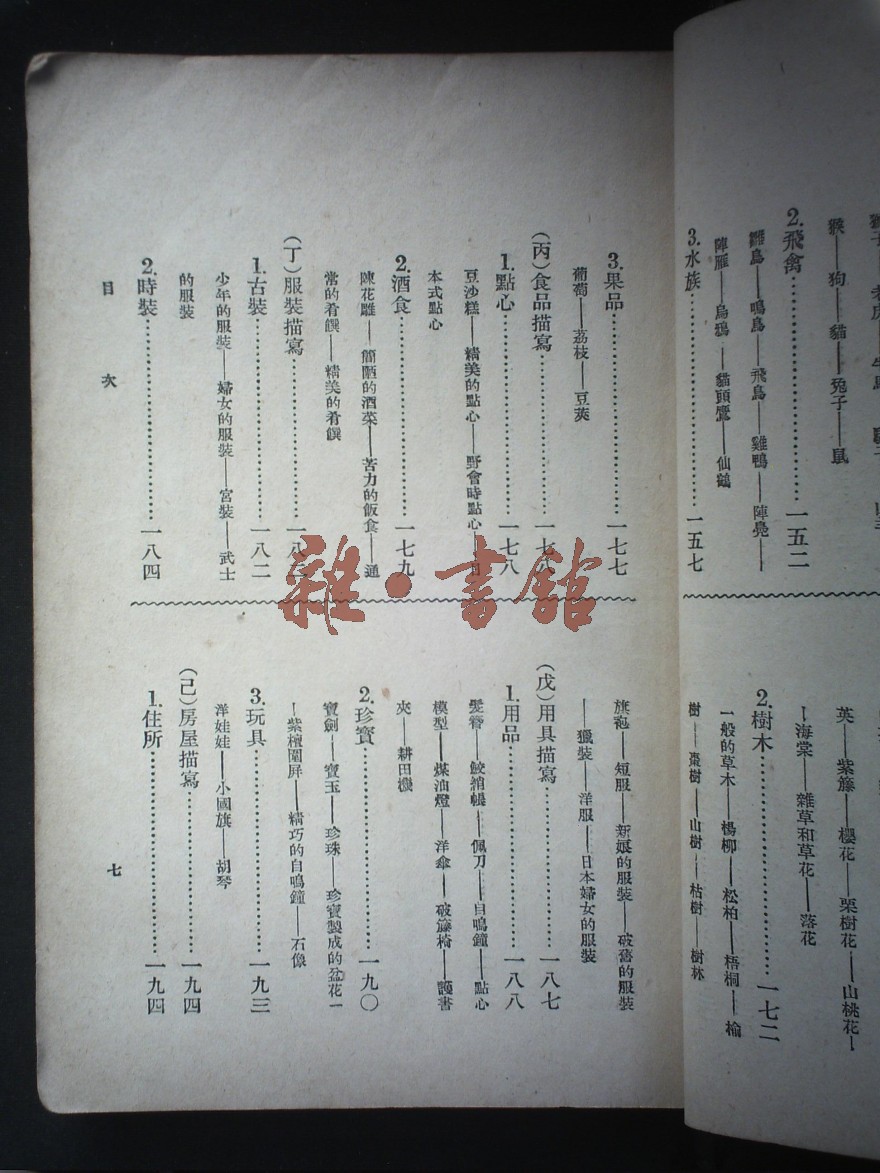 猴——狗——貓——兔子——鼠
2.飛禽…………………一五二
雛鳥——鳴鳥——飛鳥——雞鴨——陣鳧——
陣雁——烏鴉——貓頭鷹——仙鶴
3.水族…………………一五七
英——紫籐——櫻花——栗樹花——山桃花—
—海棠——雜草和草花——落花
2.樹木…………………一七二
一般的草木——楊柳——松柏——梧桐——榆
樹——棗樹——山樹——枯樹——樹林
3.果品…………………一七七
葡萄——荔枝——豆莢
(丙)食品描寫…………………一七八
1.點心…………………一七八
豆沙糕——精美的點心——野會時點心——日
本式點心
2.酒食…………………一七九
陳花雕——簡陋的酒菜——苦力的飯食——通
常的肴饌——精美的肴饌
(丁)服裝描寫…………………一八二
1.古裝…………………一八二
少年的服裝——婦女的服裝——宮裝——武士
的服裝
2.時裝…………………一八四
旗袍——短服——新娘的服裝——破舊的服裝
——獵裝——洋服——日本婦女的服裝
(戊)用具描寫…………………一八七
1.用品…………………一八八
髮簪——鮫綃帳——佩刀——自鳴鐘——點心
模型——煤油燈——洋傘——破籐椅——護書
夾——耕田機
2.珍寶…………………一九〇
寶劍——寶玉——珍珠——珍寶製成的盆花—
—紫檀圍屏——精巧的自鳴鐘——石像
3.玩具…………………一九三
洋娃娃——小國旗——胡琴
(己)房屋描寫…………………一九四
1.住所…………………一九四
目次
七
雜·書館